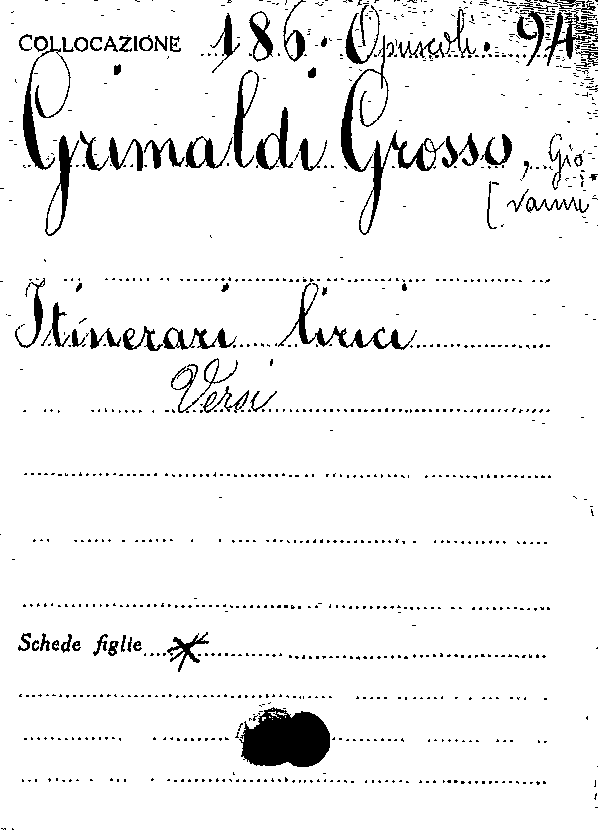 COLLOCAZIONE 186. Opuscoli. 94
Grimaldi Grosso, Gio
[vanni
Itinerari lirici
Versi
Schede figlie